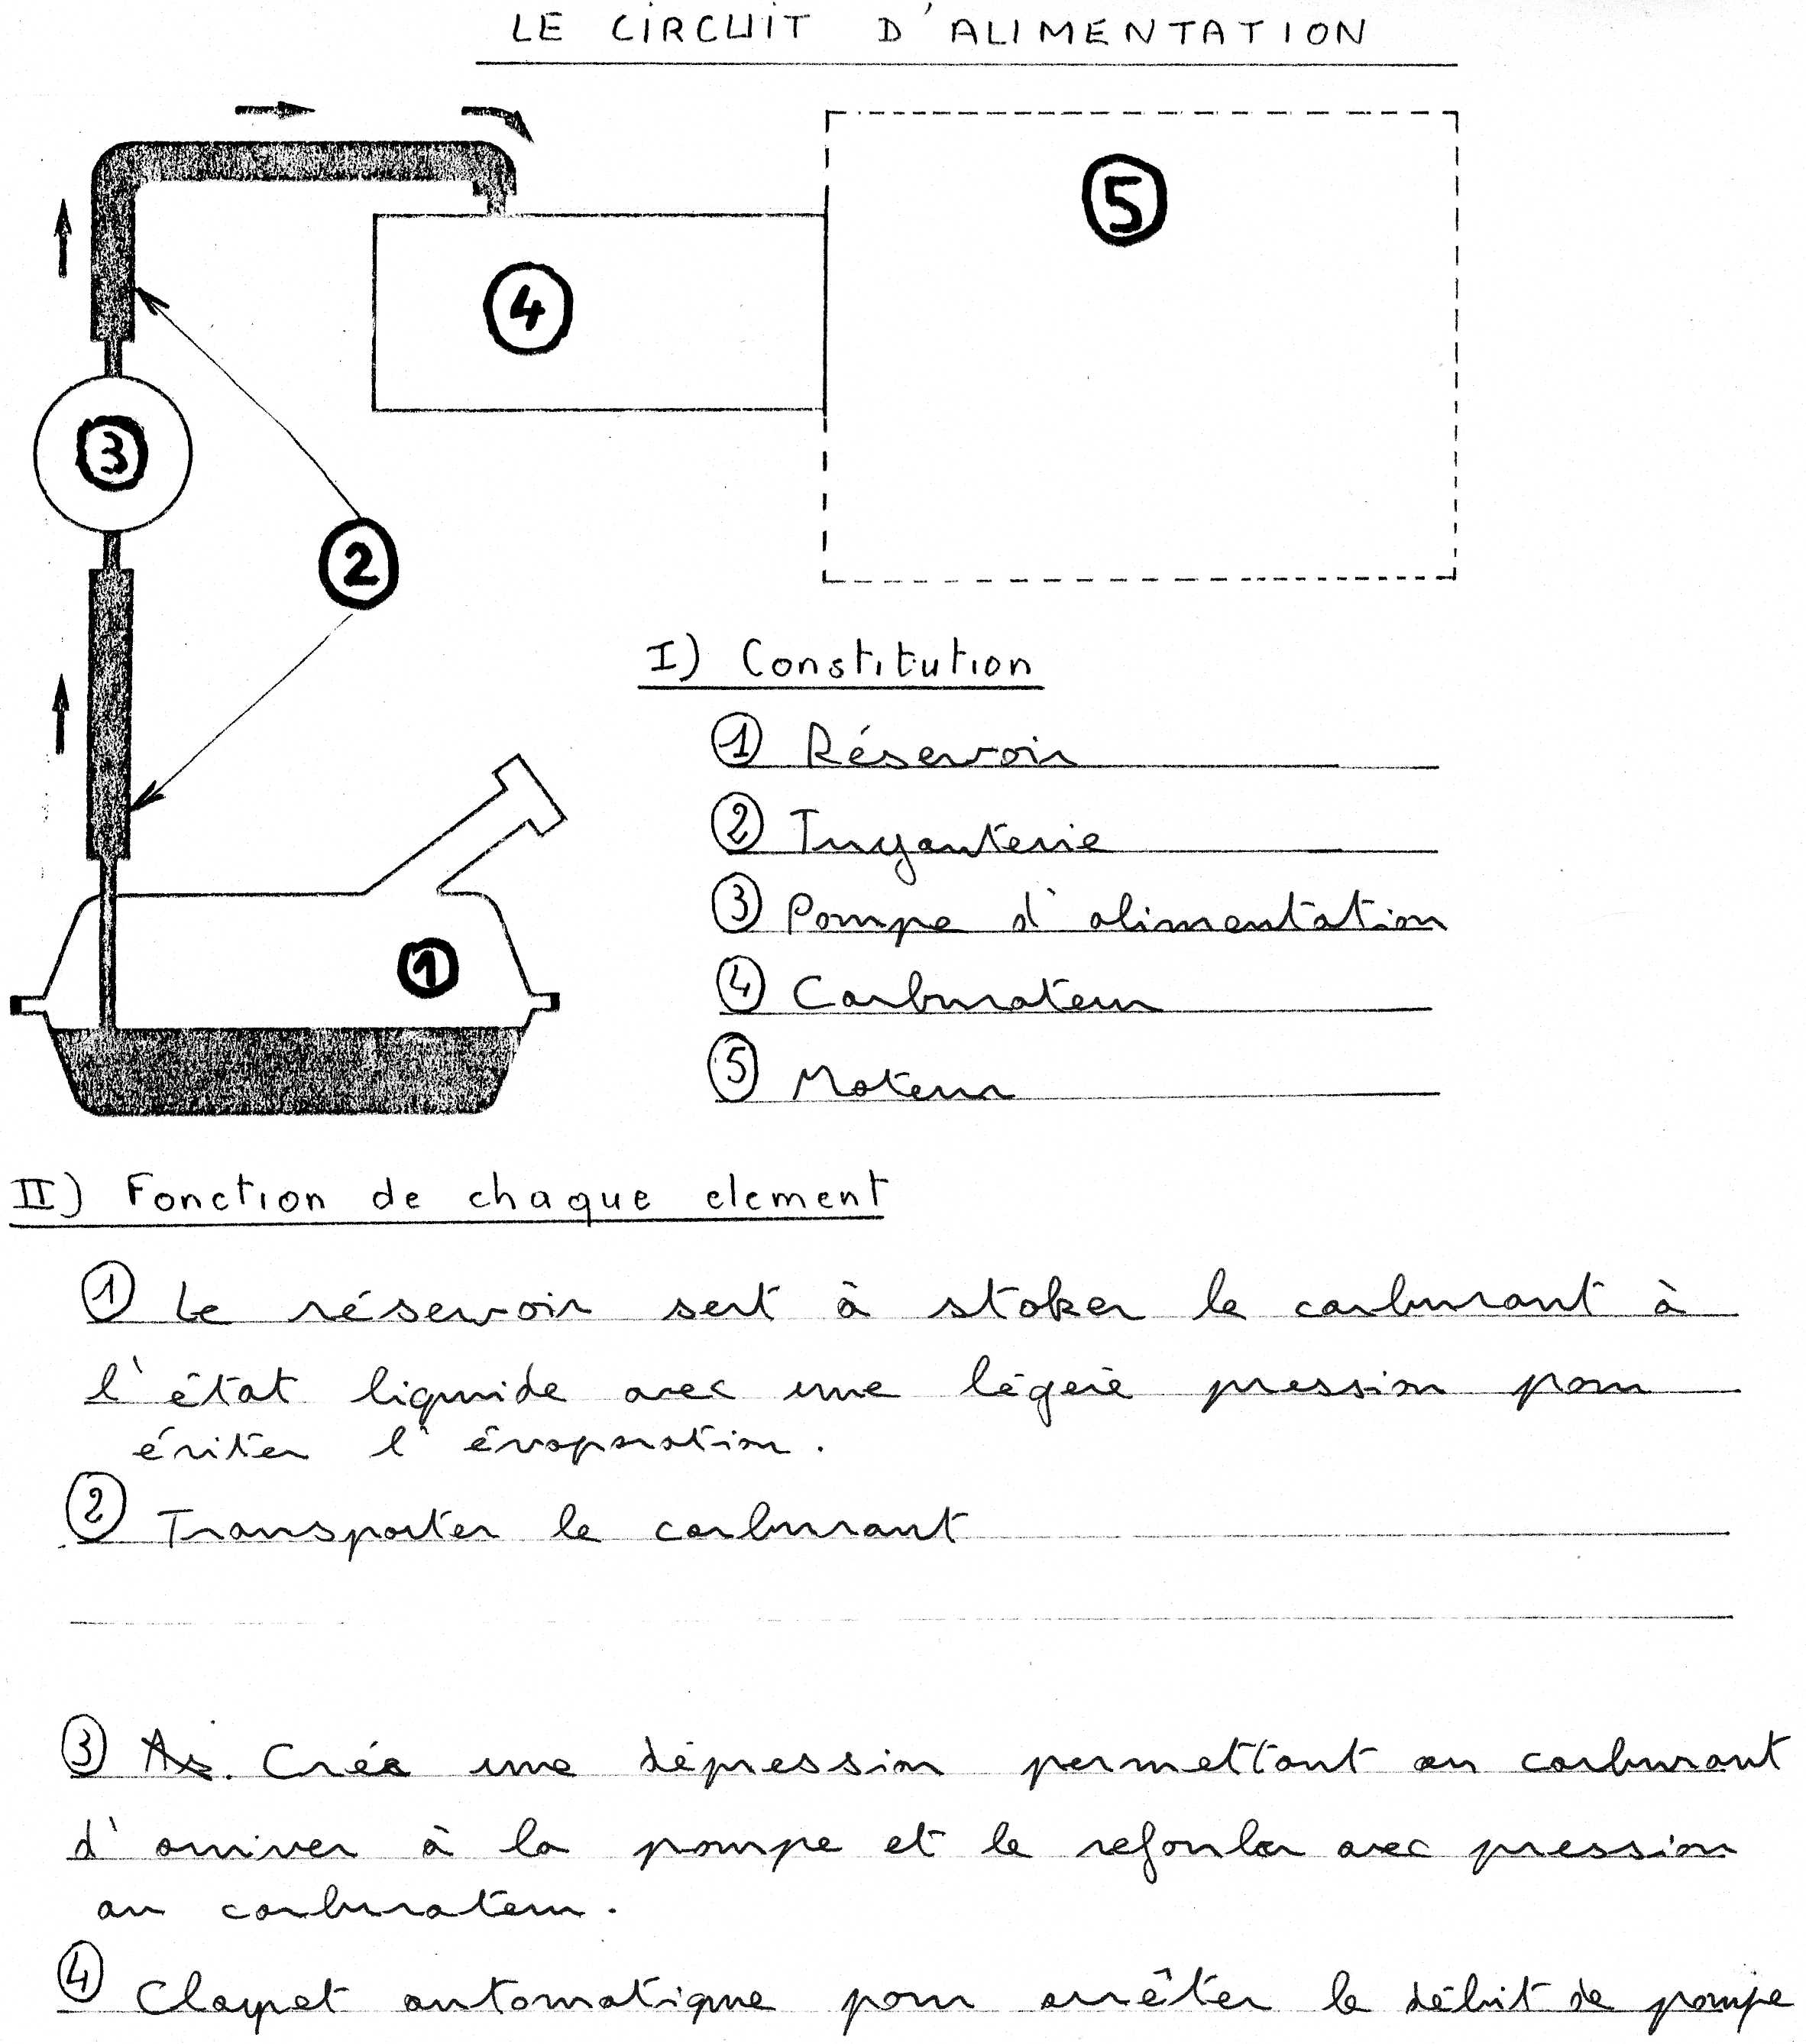 LE CIRCUIT D'ALIMENTATION
5
4
3
2
1
I) Constitution
① Réservoir
② Tuyauterie
③ Pompe d'alimentation
④ Carburateur
⑤ Moteur
II) Fonction de chaque element
① Le réservoir sert à stoker le carburant à
l'état liquide avec une légère pression pour
éviter l'évaporation.
② Transporter le carburant
③ Crée une dépression permettant au carburant
d'arriver à la pompe et le refouler avec pression
au carburateur.
④ Claypet automatique pour arrêter le débit de pompe